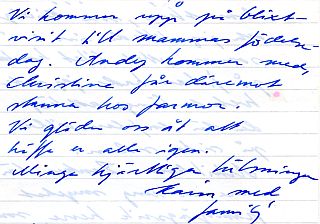 Vi kommer upp på blixt-
visit till mammas födelse-
dag. Andy kommer med,
Christine får däremot
stanna hos farmor.
Vi gläder oss åt att
träffa er alla igen.
Många hjärtliga hälsningar
Karin med
familj